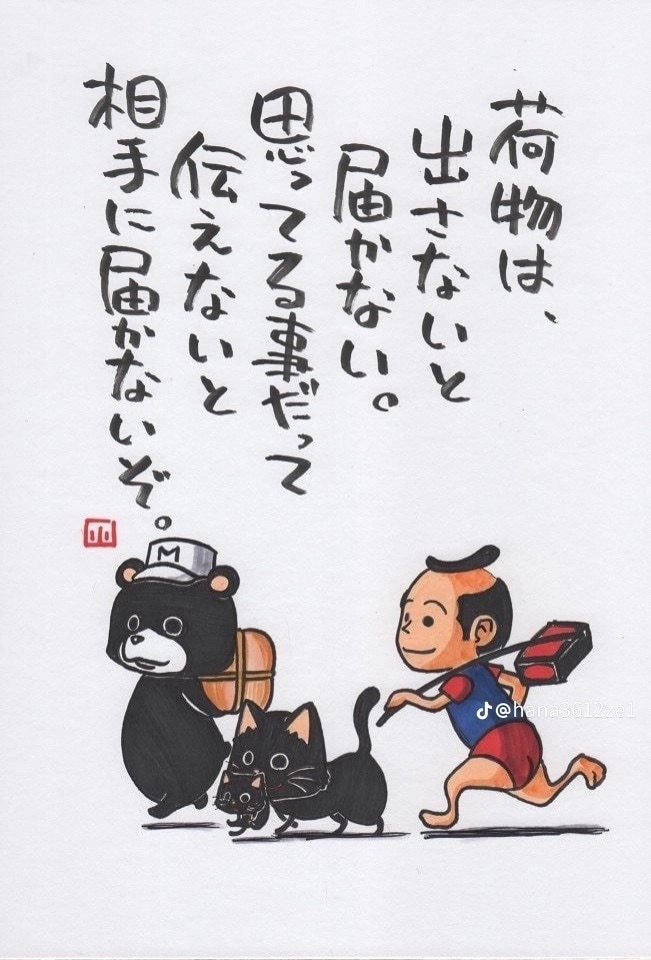 荷物は、
出さないと
届かない。
思ってる事だって
伝えないと
相手に届かないぞ。
M
@hana3612ze1